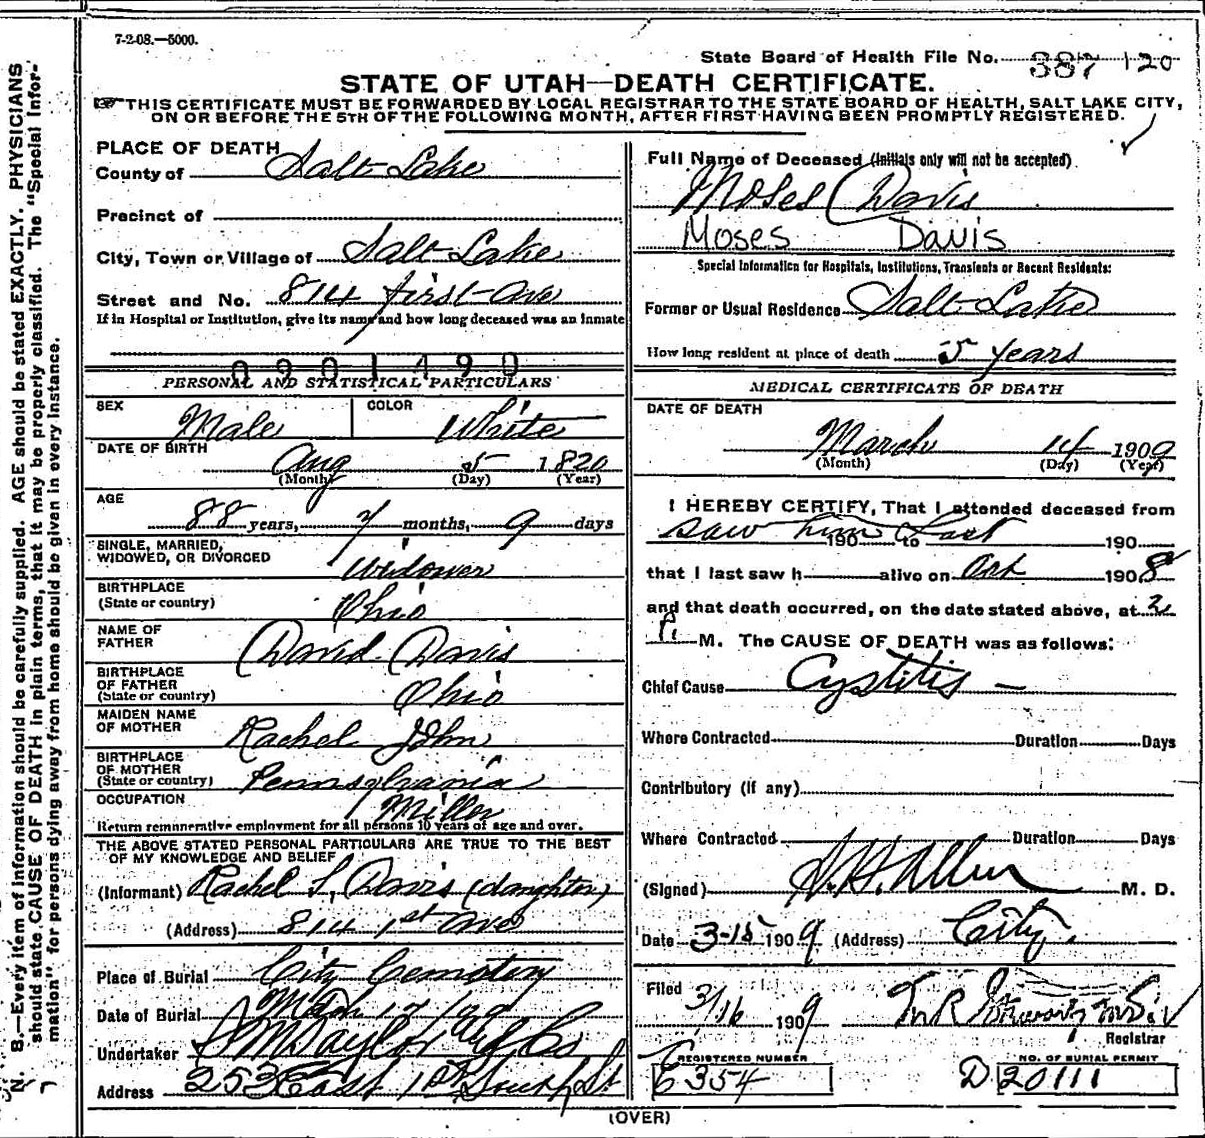 7-2-08.—5000.
State Board of Health File No. 387 120
STATE OF UTAH—DEATH CERTIFICATE.
THIS CERTIFICATE MUST BE FORWARDED BY LOCAL REGISTRAR TO THE STATE BOARD OF HEALTH, SALT LAKE CITY,
ON OR BEFORE THE 5TH OF THE FOLLOWING MONTH, AFTER FIRST HAVING BEEN PROMPTLY REGISTERED.
N. B.—Every item of information should be carefully supplied. AGE should be stated EXACTLY. PHYSICIANS
should state CAUSE OF DEATH in plain terms, that it may be properly classified. The "Special Infor-
mation" for persons dying away from home should be given in every instance.
PLACE OF DEATH
County of Salt Lake
Precinct of
City, Town or Village of Salt Lake
Street and No. 814 first Ave
If in Hospital or Institution, give its name and how long deceased was an inmate
0901490
PERSONAL AND STATISTICAL PARTICULARS
SEX Male COLOR White
DATE OF BIRTH
Aug 5 1820
(Month) (Day) (Year)
AGE
88 years, 7 months, 9 days
SINGLE, MARRIED,
WIDOWED, OR DIVORCED Widower
BIRTHPLACE
(State or country) Ohio
NAME OF
FATHER David Davis
BIRTHPLACE
OF FATHER
(State or country) Ohio
MAIDEN NAME
OF MOTHER Rachel John
BIRTHPLACE
OF MOTHER
(State or country) Pennsylvania
OCCUPATION Miller
Return remunerative employment for all persons 10 years of age and over.
THE ABOVE STATED PERSONAL PARTICULARS ARE TRUE TO THE BEST
OF MY KNOWLEDGE AND BELIEF
(Informant) Rachel L. Davis (daughter)
(Address) 814 1st Ave
Place of Burial City Cemetery
Date of Burial March 17/09
Undertaker S M Taylor Co
Address 253 East 1st South St
Full Name of Deceased (Initials only will not be accepted)
Moses Davis
Moses Davis
Special Information for Hospitals, Institutions, Transients or Recent Residents:
Former or Usual Residence Salt Lake
How long resident at place of death 5 years
MEDICAL CERTIFICATE OF DEATH
DATE OF DEATH
March 14 1909
(Month) (Day) (Year)
I HEREBY CERTIFY, That I attended deceased from
saw him 190 to last 190
that I last saw h alive on Oct 1908
and that death occurred, on the date stated above, at 2
P. M. The CAUSE OF DEATH was as follows:
Chief Cause Cystitis —
Where Contracted Duration Days
Contributory (if any)
Where Contracted Duration Days
(Signed) Allen M. D.
Date 3-15 1909 (Address) City.
Filed
3/16 1909
Registrar
REGISTERED NUMBER NO. OF BURIAL PERMIT
E 354 D 20111
(OVER)